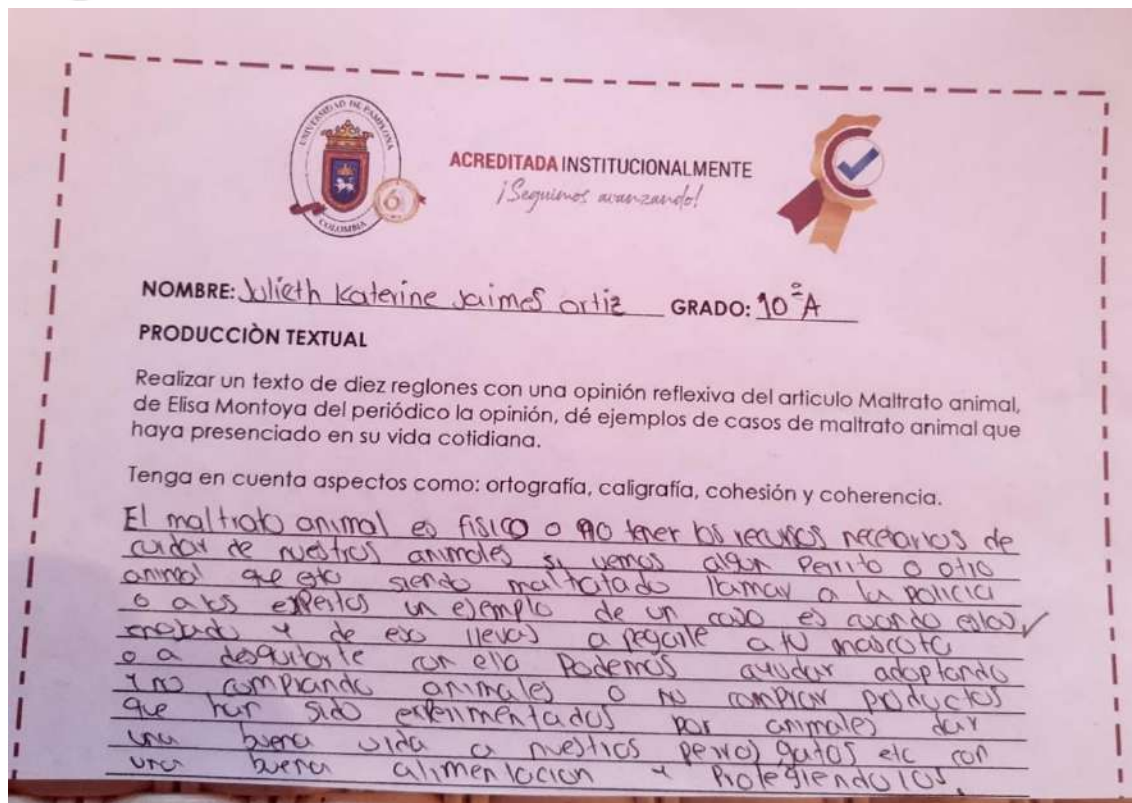 UNIVERSIDAD DE PAMPLONA
COLOMBIA
ACREDITADA INSTITUCIONALMENTE
¡Seguimos avanzando!
NOMBRE: Julieth Katerine Jaimes Ortiz GRADO: 10ºA
PRODUCCIÒN TEXTUAL
Realizar un texto de diez reglones con una opinión reflexiva del articulo Maltrato animal,
de Elisa Montoya del periódico la opinión, dé ejemplos de casos de maltrato animal que
haya presenciado en su vida cotidiana.
Tenga en cuenta aspectos como: ortografía, caligrafía, cohesión y coherencia.
El maltrato animal es fisico o no tener los recursos necesarios de
cuidar de nuestros animales si vemos algun perrito o otro
animal que esta siendo maltratado llamar a la policia
o a los expertos un ejemplo de un caso es cuando estas
enojado y de eso llevas a pegarle a tu mascota
o a desquitarte con ella Podemos ayudar adoptando
y no comprando animales o no comprar productos
que han sido experimentados por animales dar
una buena vida a nuestros perros, gatos etc con
una buena alimentacion y Protegiendolos.